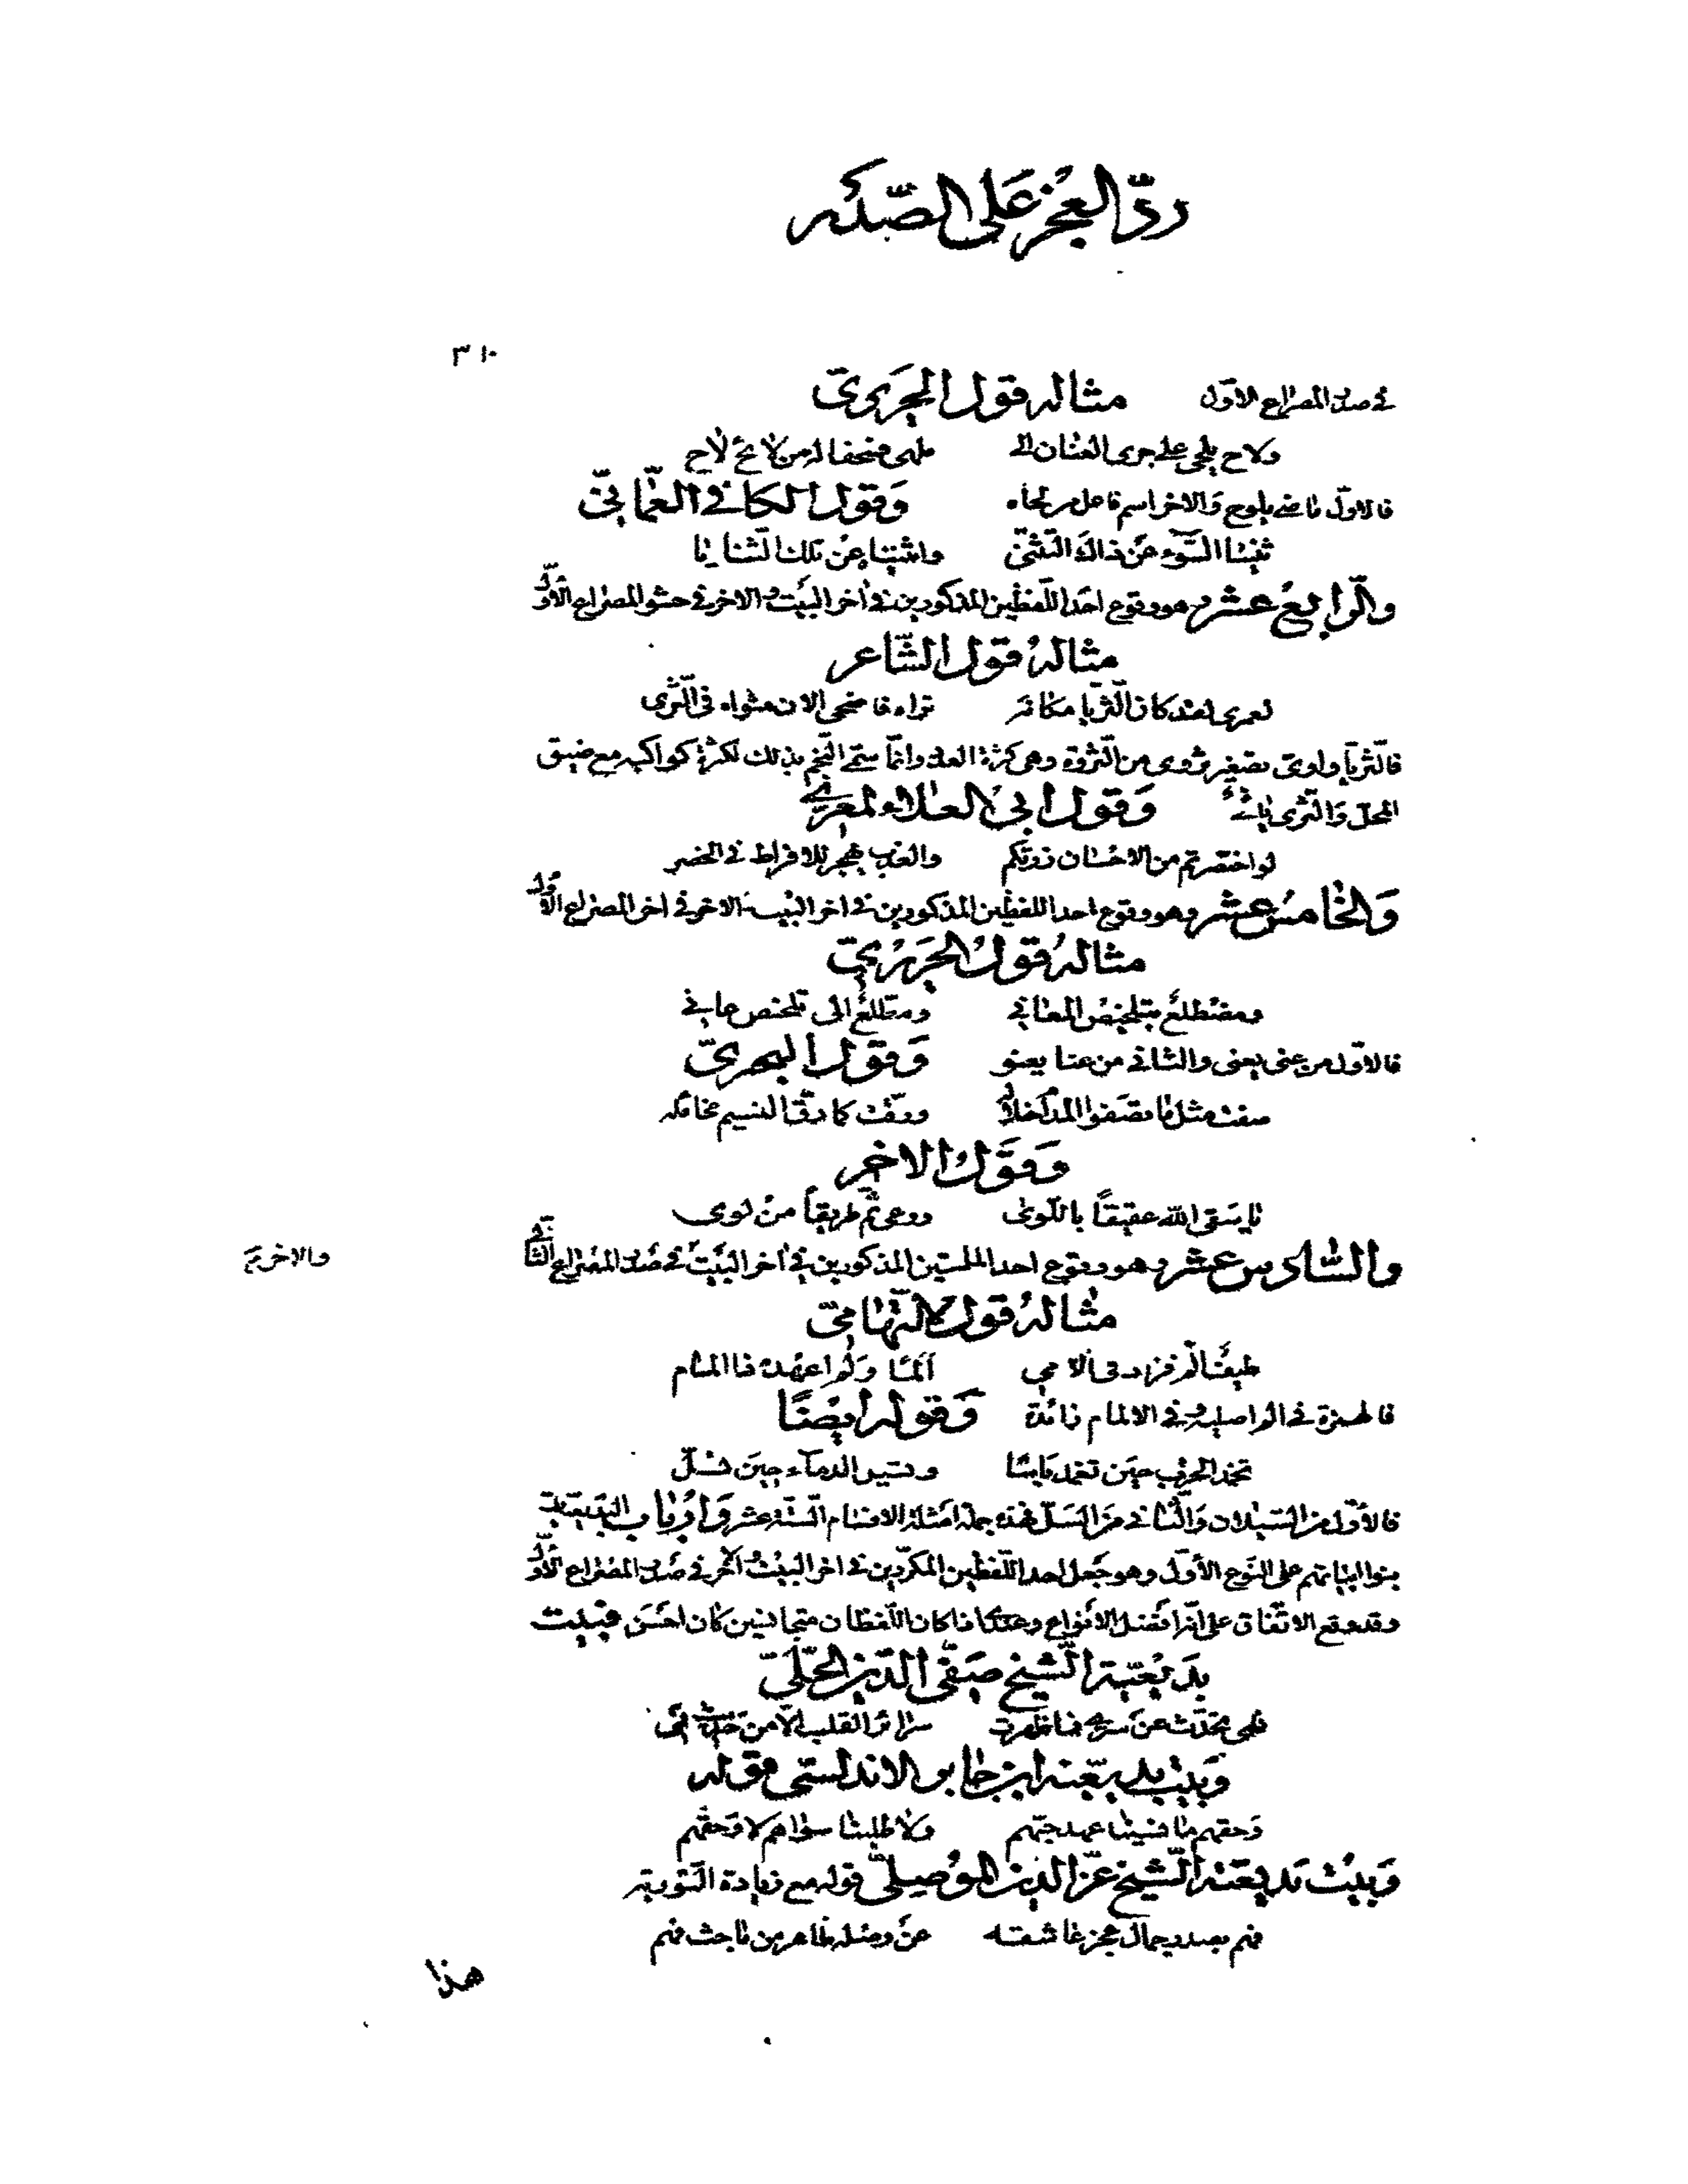 ردّ العجز على الصدر
٣١٠
في صدر المصراع الاوّل مثاله قول الحريرىّ
ولاح يلحى على جرى العنان الى ملهى فسحقا له من لائح لاح
فالاوّل ماضى يلوح والاخر اسم فاعل من لحاه وقول الكافى العمانىّ
ثنينا السوء عن ذاك التثنّى واثنينا عن تلك الثنايا
والرابع عشر وهو وقوع احد اللفظين المذكورين فى اخر البيت والاخر فى حشو المصراع الاوّل
مثاله قول الشاعر
لعمرى لقد كان الثريّا مكانه تراه فاضحى الان مثواه فى الثرى
فالثريّا واوىّ تصغير ثروى من الثروة وهى كثرة العدد وانّما سمّى النجم بذلك لكثرة كواكبه مع ضيق
المحل والثرى يائىّ وقول ابى العلاء المعرىّ
لو اختصرتم من الاحسان زرتكم والعذب يهجر للافراط فى الخصر
والخامس عشر وهو وقوع احد اللفظين المذكورين فى اخر البيت والاخر فى اخر المصراع الاوّل
مثاله قول الحريرىّ
ومضطلع بتلخيص المعانى ومطّلع الى تلخيص عانى
فالاوّل من عنى يعنى والثانى من عنا يعنو وقول البحترىّ
صفت مثل ما تصفو المدام خلاله ورقّت كما رقّ النسيم شمائله
وقول الاخر
يا سقى الله عقيقاً باللوى ورعى ثمّ طريقاً من لوى
والسّادس عشر وهو وقوع احد الملحقين المذكورين فى اخر البيت والاخر فى صدر المصراع الثانى
مثاله قول التهامىّ
طيف المّ فزاد فى الامى المّا ولم اعهده ذا المام
فالهمزة فى الم اصلية وفى الالمام زائدة وقوله ايضًا
تخمد الحرب حين تغمد باسًا وتسيل الدماء حين تسلّ
فالاوّل من السيلان والثانى من السلّ فهذه جملة امثلة الاقسام الستّة عشر وارباب البديعيات
بنوا ابياتهم على النوع الأوّل وهو جعل احد اللفظين المكرّرين فى اخر البيت والآخر فى صدر المصراع الاوّل
وقد وقع الاتّفاق على انّه افضل الانواع وعندى اذا كان اللّفظان متجانسين كان احسن فبيت
بديعيّة الشيخ صفىّ الدّين الحلّىّ
فمى تحدّث عن سرى فما ظهرت سرائر القلب الّا من حديث فمى
وبيت بديعيّة ابن جابر الاندلسى قوله
وحقهم ما نسينا عهد حبّهم ولا طلبنا سواهم لا وحقّهم
وبيت بديعيّة الشيخ عزّ الدين الموصلىّ قوله مع زيادة التورية
فهم بصدر جمال عجز عاشقه عن وصله ظاهر من باحث فهم
هذا